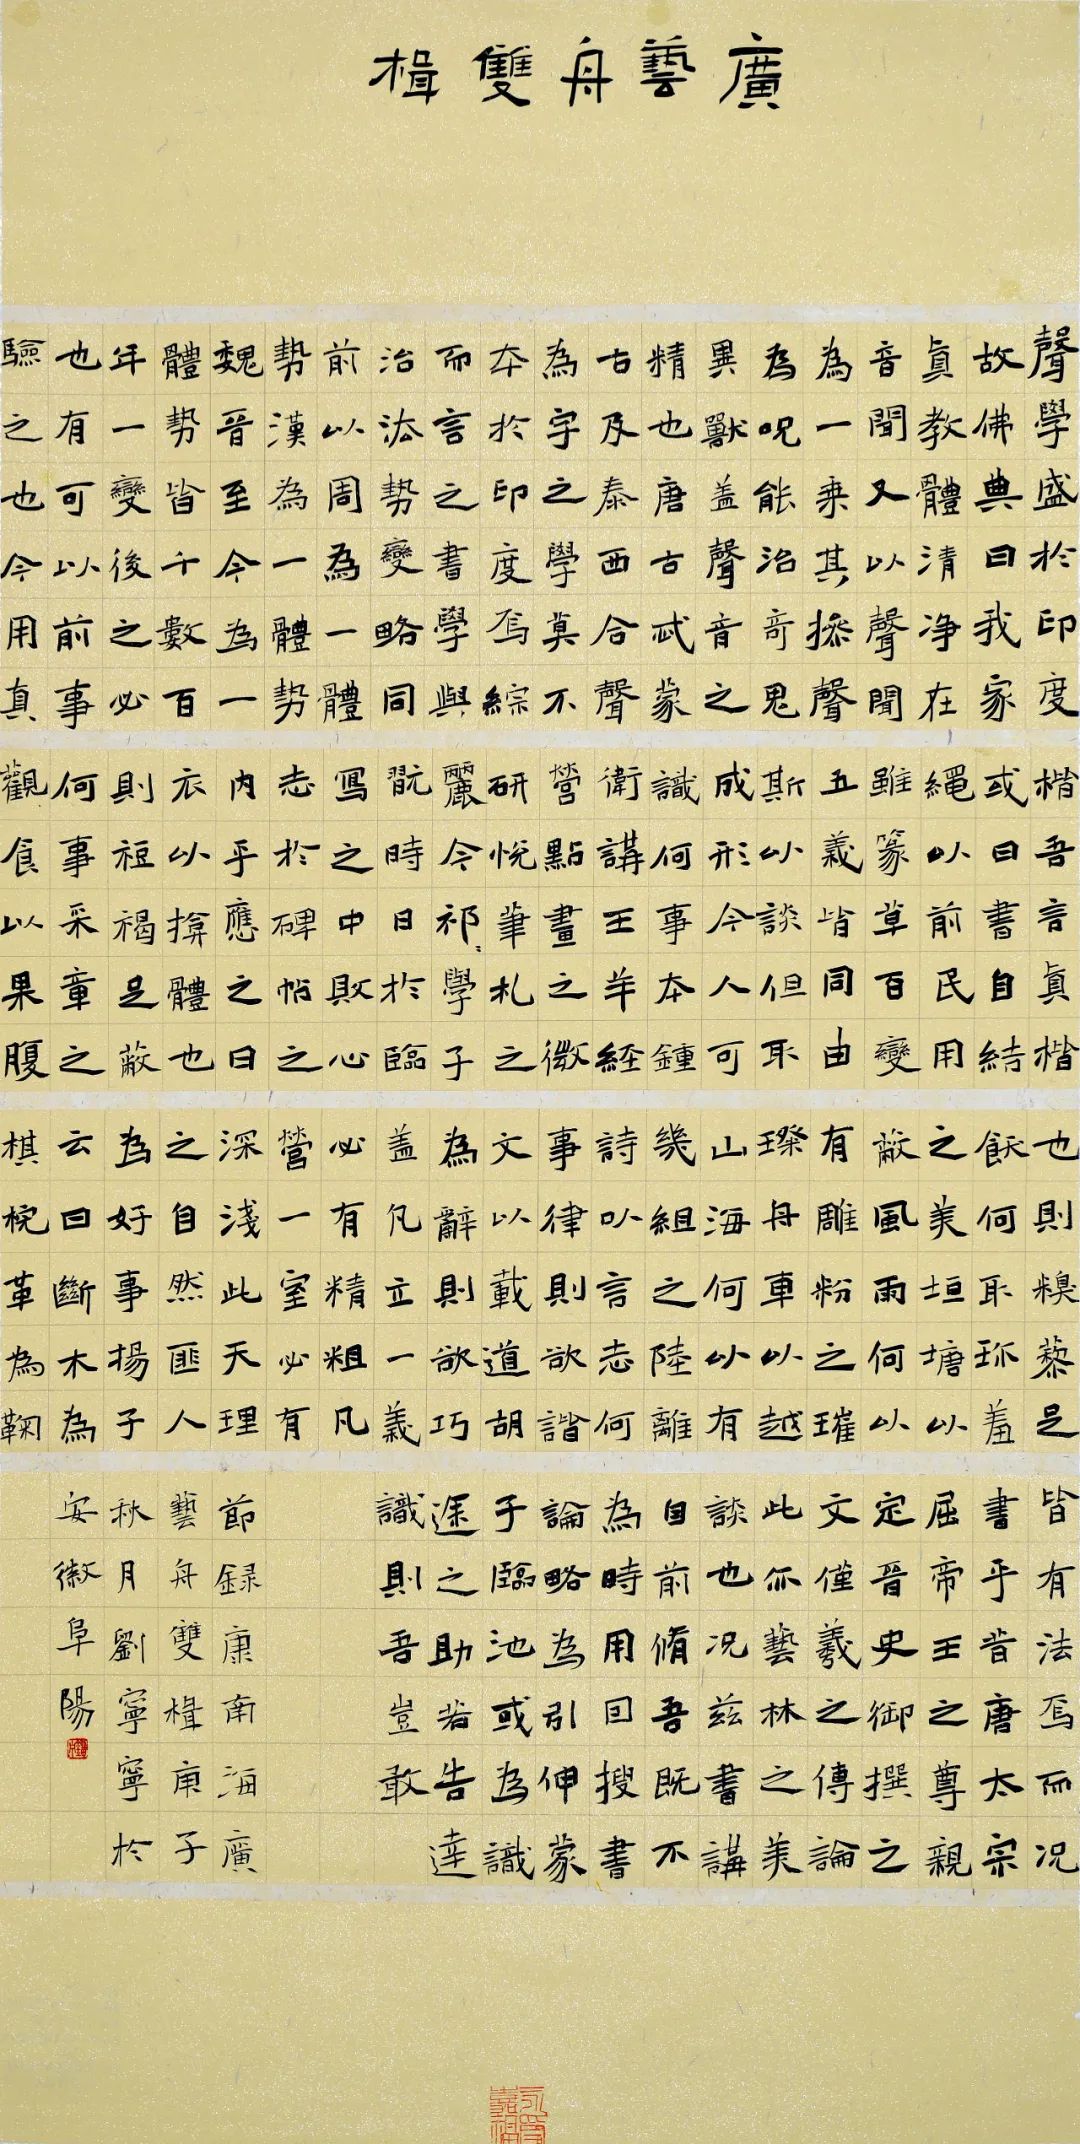 廣藝舟雙楫
聲學盛於印度
故佛典曰我家
真教體清净在
音聞又以聲聞
為一乘其操聲
為呪能治奇鬼
異獸盖聲音之
精也唐古忒蒙
古及泰西合聲
為字之學莫不
本於印度焉綜
而言之書學與
治法勢變略同
前以周為一體
勢漢為一體勢
魏晉至今為一
體勢皆千數百
年一變後之必
也有可以前事
驗之也今用真
楷吾言真楷
或曰書自結
繩以前民用
雖篆草百變
五義皆同由
斯以談但取
成形今人可
識何事本鍾
衛講王羊經
營點畫之微
研悅筆札之
麗令祁〻學子
翫時日於臨
寫之中敗心
志於碑帖之
內乎應之曰
衣以揜體也
則裋褐足蔽
何事采章之
觀食以果腹
也則糗藜足
飫何取珎羞
之美垣墉以
蔽風雨何以
有雕粉之璀
璨舟車以越
山海何以有
幾組之陸離
詩以言志何
事律則欲諧
文以載道胡
為辭則欲巧
盖凡立一義
必有精粗凡
營一室必有
深淺此天理
之自然匪人
為好事揚子
云曰斷木為
棋梡革為鞠
皆有法焉而況
書乎昔唐太宗
屈帝王之尊親
定晉史御撰之
文僅羲之傳論
此亦藝林之美
談也况兹書講
自前脩吾既不
為時用回搜書
論略為引伸蒙
子臨池或為識
途之助若告達
識則吾豈敢
節録康南海廣
藝舟雙楫庚子
秋月劉寧寧於
安徽阜陽